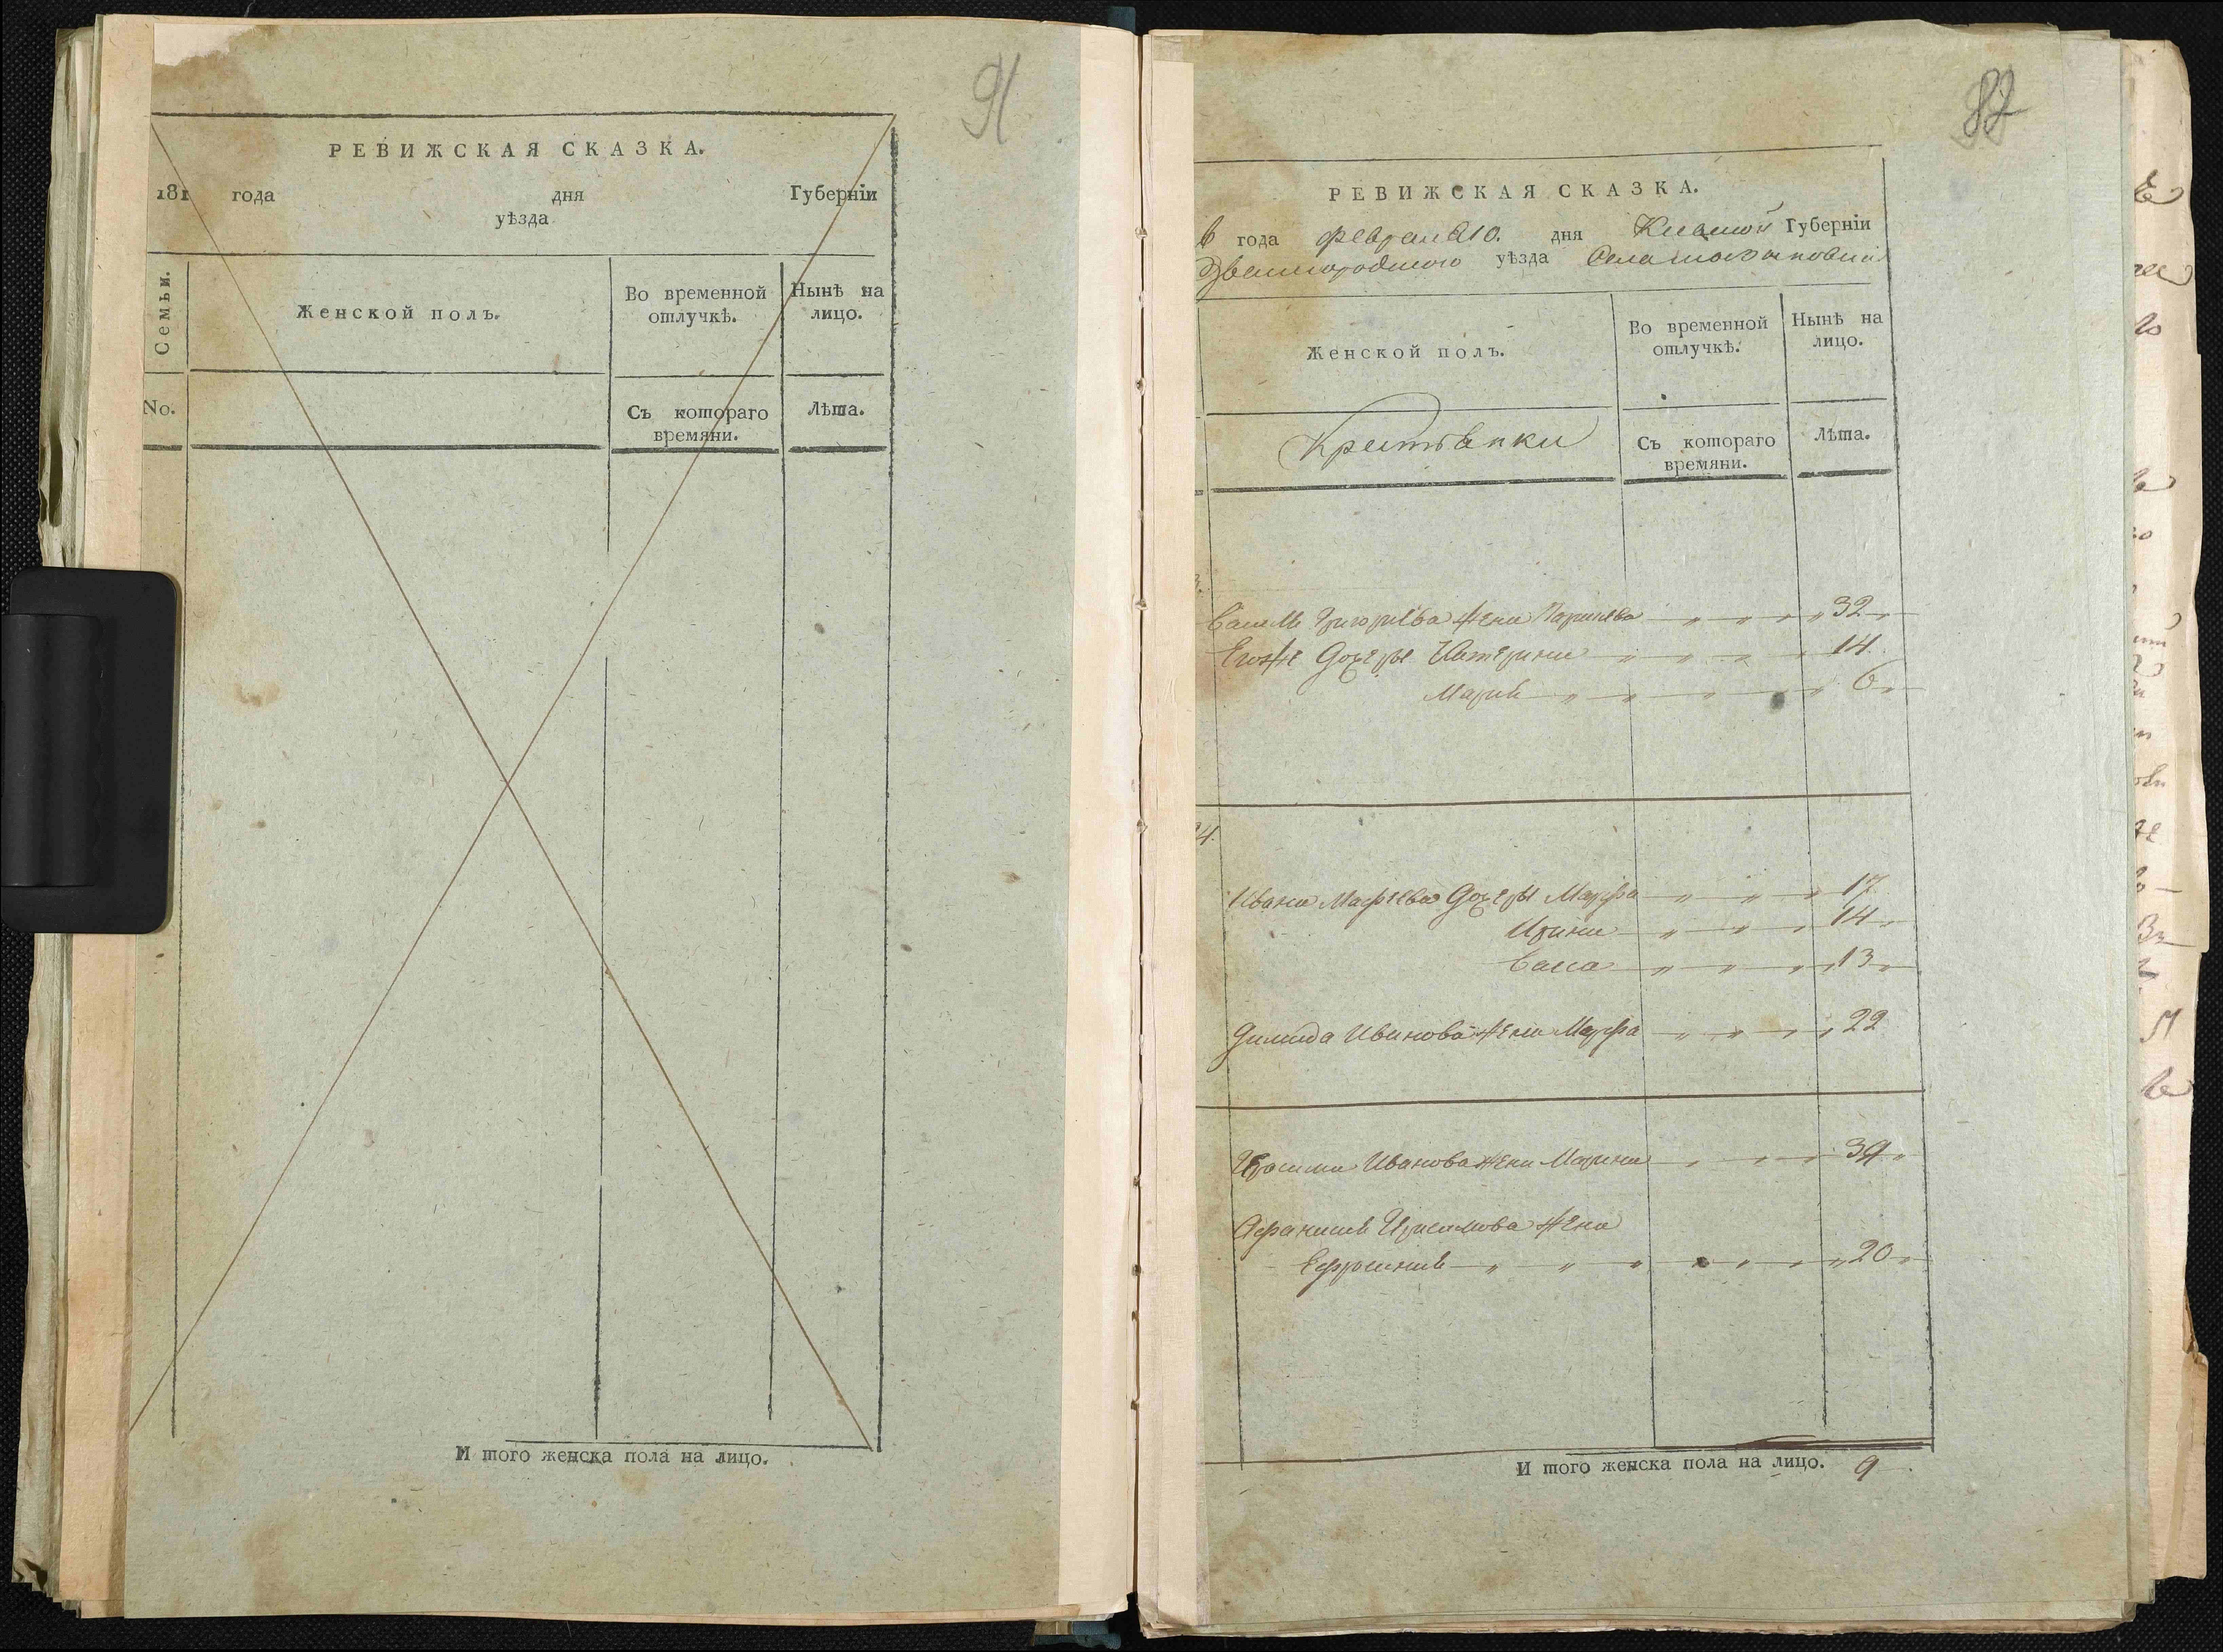 91
РЕВИЖСКАЯ СКАЗКА.
181 года дня Губерніи
уѣзда
Семьи.
Женской полъ.
Во временной отлучкѣ.
Нынѣ на лицо.
No.
Съ котораго времяни.
Лѣта.
И того женска пола на лицо.
82
РЕВИЖСКАЯ СКАЗКА.
6 года февраля 10. дня Киевской Губерніи
Звенигородского уѣзда Села
Женской полъ.
Во временной отлучкѣ.
Нынѣ на лицо.
Крестьянки
Съ котораго времяни.
Лѣта.
Григорьева жена 32
Егоже дочери Катерина 14
Мария 6
4.
Ивана дочери Марфа 17
Ирина 14
13
Ивановa жена Марфа 22
Иванова жена Марина 39
жена
20
И того женска пола на лицо. 9